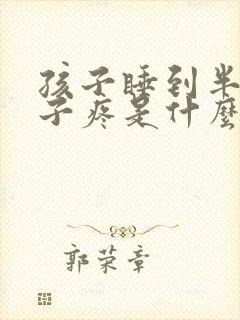 孩子睡到半
子疼是什麼
郭荣章